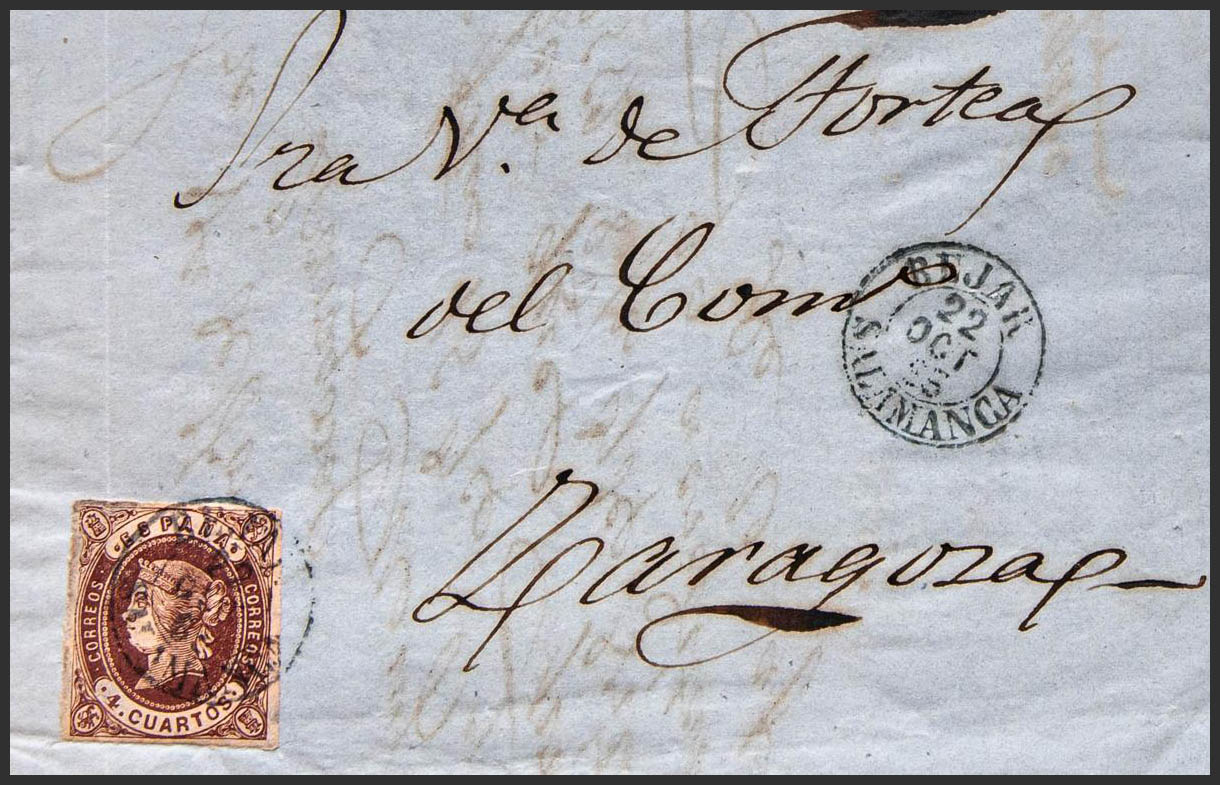 Sra V.ª de Hortea
del Com.º
BEJAR
22
OCT
SALAMANCA
Zaragoza
ESPAÑA
CORREOS
CORREOS
4 CUARTOS